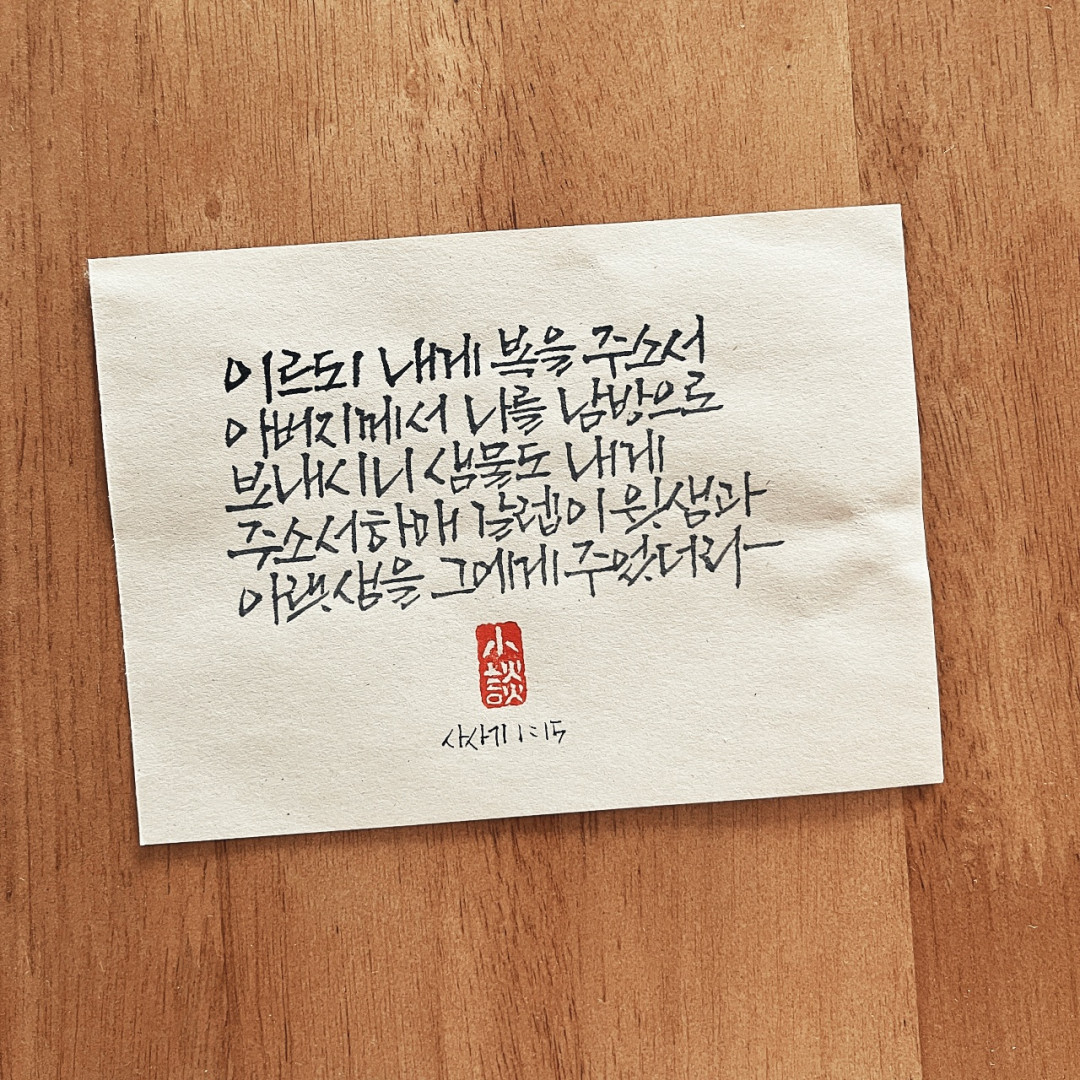 이르되 내게 복을 주소서
아버지께서 나를 남방으로
보내시니 샘물도 내게
주소서하매 갈렙이 윗샘과
아랫샘을 그에게 주었더라
小談
사사기 1:15